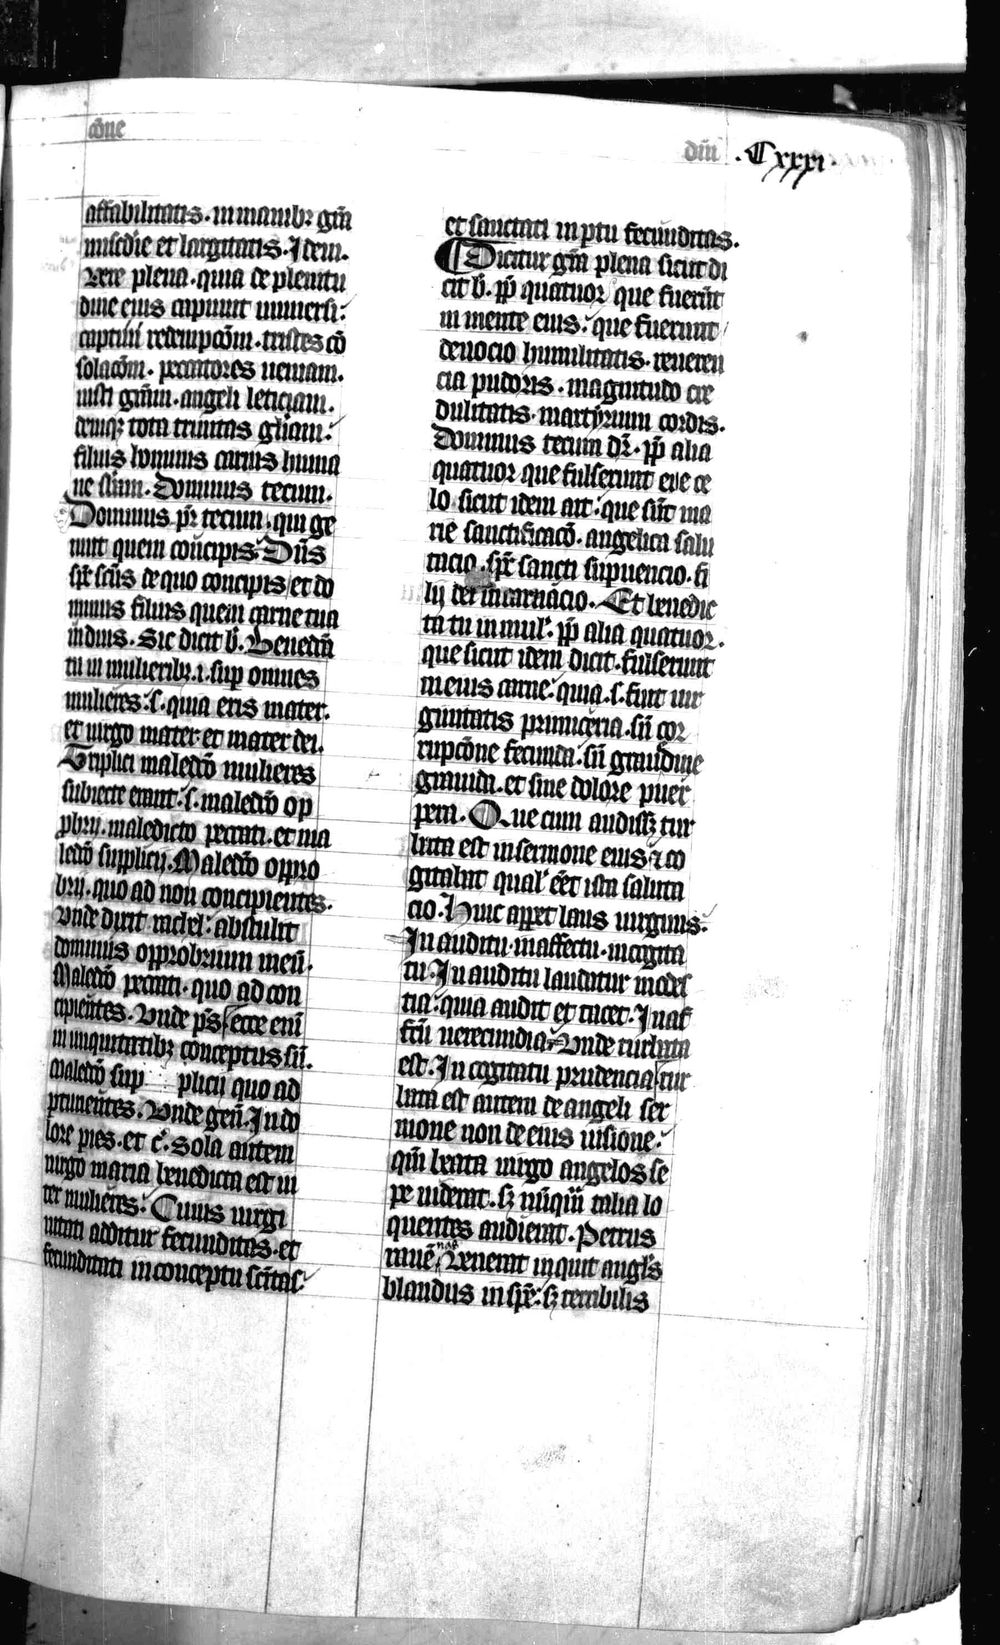 cōne
dn̄i .Cxxxi.
affabilitatis. in manibꝫ gr̄a
mīscdīe et largitatis. Idem.
Uere plena. quia de plenitu
dine eius capiunt uniuersi:
captiui redempcōm. tristes cō
solacōm. peccatores ueniam.
iusti grām. angeli leticiam.
deniqꝫ tota trinitas gl̄iam:
filius hominis carnis huma
ne sb̄am. Dominus tecum.
Dominus pr̄ tecum. qui ge
nuit quem concipis. Dn̄s
spc̄ scūs de quo concipis / et do
minus filius quem carne tua
induis. Sic dicit b̄. Benedc̄a
tu in mulieribꝫ. i. sup omnes
mulieres: s. quia eris mater.
et uirgo mater et mater dei.
Triplici maledcō mulieres
subiecte erant. s. maledcō op
probrij. maledicto peccati. et ma
ledcō supplicij. Maledcō oppro
brij. quo ad non concipientes.
Unde dixit rachel: abstulit
dominus opprobrium meū.
Maledcō peccati. quo ad con
cipientes. Unde ps̄ / ecce enī
in iniquitatibꝫ conceptus sū.
Maledcō sup plicij quo ad
parientes. Unde gen̄. In do
lore paries. et c̄. Sola autem
uirgo maria benedicta est in
ter mulieres: Cuius uirgi
nitati additur fecunditas. et
fecunditati in conceptu scītas:
et sanctati in ptu fecunditas.
¶ Dicitur gr̄a plena sicut di
cit b̄. pp̄ quatuor que fuerūt
in mente eius: que fuerunt
deuocio humilitatis. reueren
cia pudoris. magnitudo cre
dulitatis. martyrium cordis.
Dominus tecum dr̄. pp̄ alia
quatuor que fulserunt ei de ce
lo sicut idem ait: que sūt ma
rie sanctificacō. angelica salu
tacio. spc̄ sancti supuencio. fi
lij dei incarnacio. Et benedic
ta tu in mul̄. pp̄ alia quatuor.
que sicut idem dicit. fulserunt
in eius carne: quia. s. fuit uir
ginitatis primiceria. sn̄ cor
rupcōne fecunda. sn̄ graudine
grauida. et sine dolore puer
pera. Que cum audissꝫ tur
bata est in sermone eius ⁊ co
gitabat qual̄ eēt ista saluta
cio. Hinc apꝑet laus uirginis:
In auditu. in affectu. in cogita
tu. In auditu laudatur modes
tia: quia audit et tacet. In af
fcū uerecundia: Unde turbata
est. In cogitatu prudencia / tur
bata est autem de angeli ser
mone non de eius uisione:
qm̄ beata uirgo angelos se
pe uiderat. sꝫ nūqm̄ talia lo
quentes audierat. Petrus
rauēnas. Uenerat inquit angl̄s
blandus in spē: sꝫ terribilis